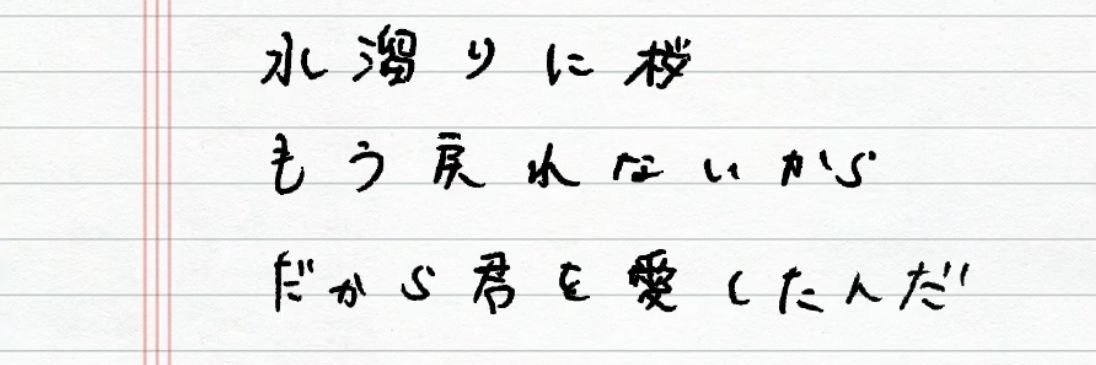 水溜りに桜
もう戻れないから
だから君を愛したんだ